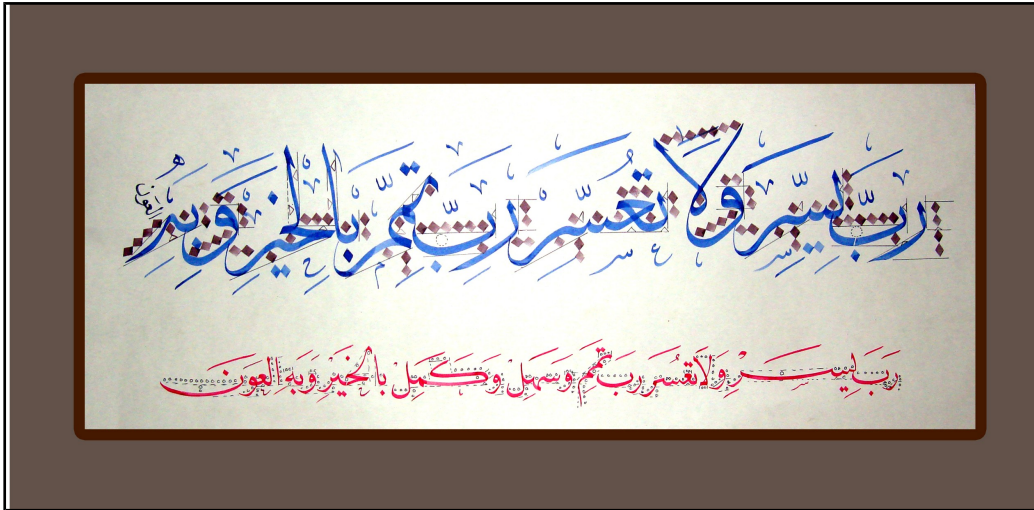 رَبِّ يَسِّرْ وَلَا تُعَسِّرْ رَبِّ تَمِّمْ بِالْخَيْرِ وَبِهِ العون
رَبِّ يَسِّرْ وَلَا تُعَسِّرْ رَبِّ تَمِّمْ وَسَهِّلْ وَكَمِّلْ بِالْخَيْرِ وَبِهِ العون